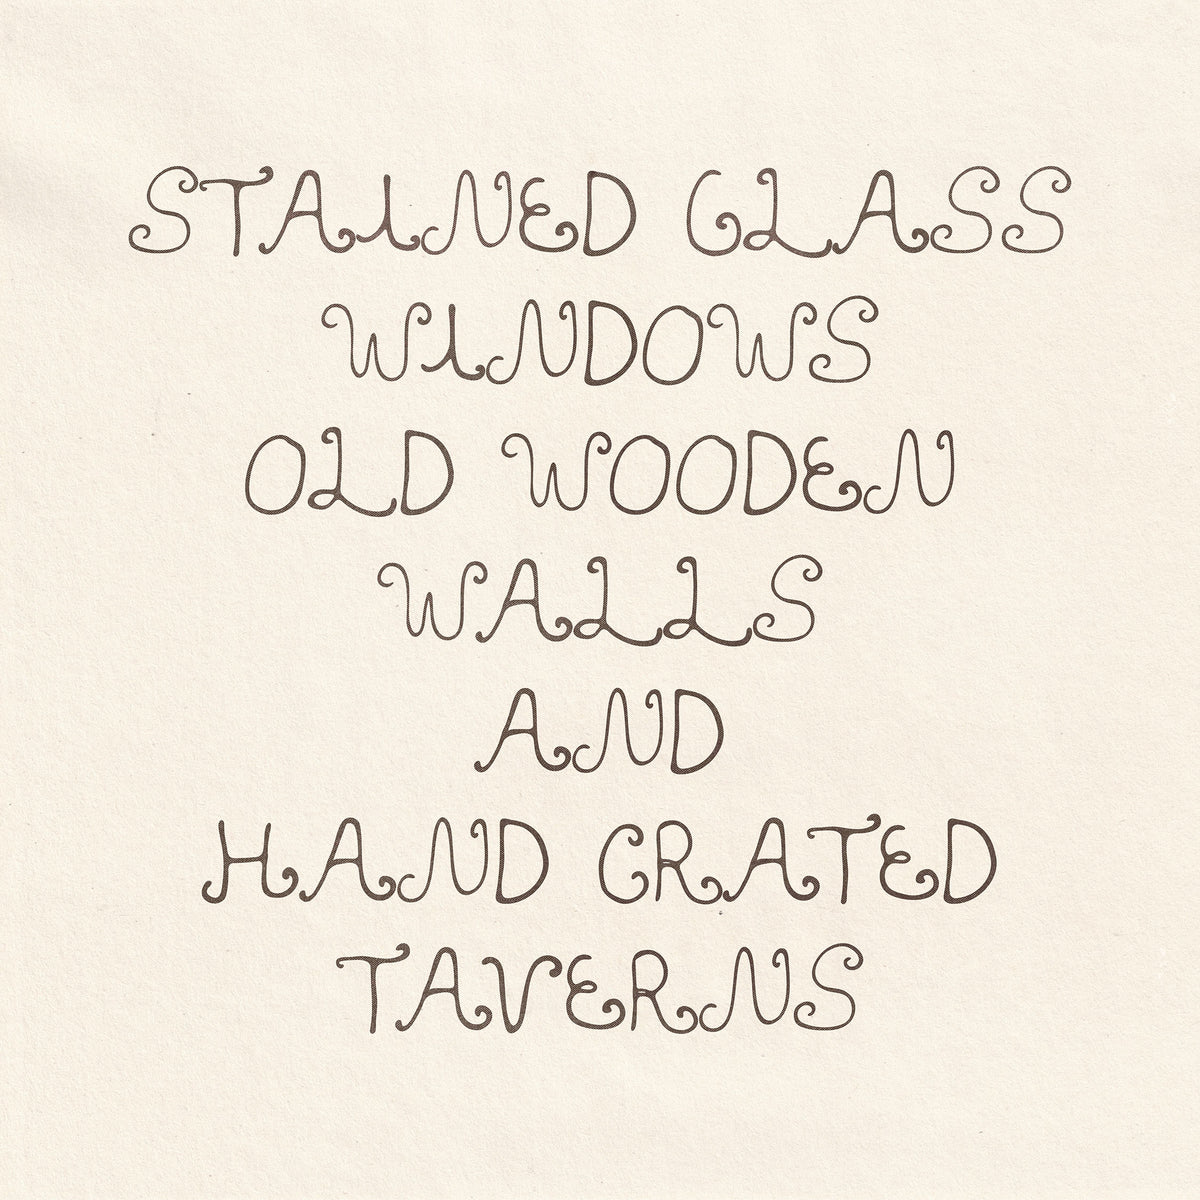 STAINED GLASS
WINDOWS
OLD WOODEN
WALLS
AND
HAND CRATED
TAVERNS